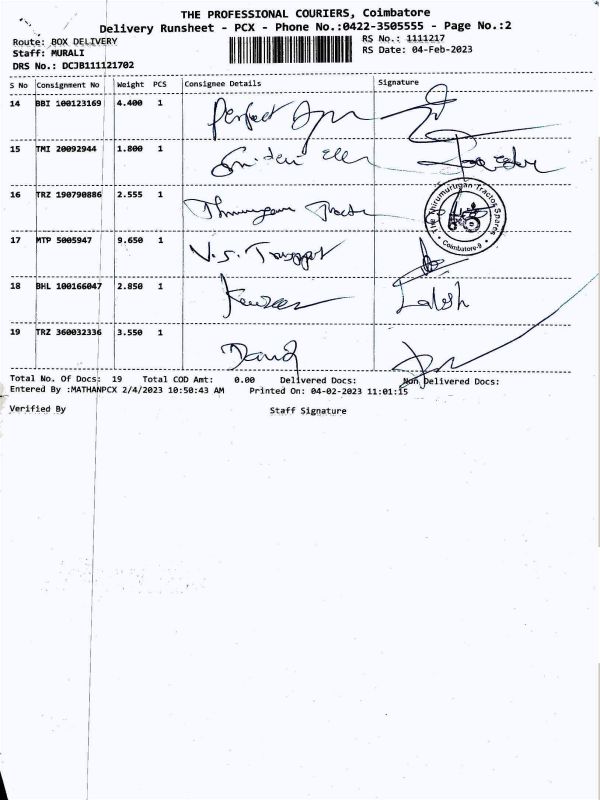 THE PROFESSIONAL COURIERS, Coimbatore
Delivery Runsheet - PCX - Phone No.:0422-3505555 - Page No.:2
Route: BOX DELIVERY
Staff: MURALI
DRS No.: DCJB111121702
RS No.: 1111217
RS Date: 04-Feb-2023
S No Consignment No Weight PCS Consignee Details Signature
14 BBI 100123169 4.400 1 Perfect
15 TMI 20092944 1.800 1
16 TRZ 190790886 2.555 1
The Thirumurugan Tractor Spares
Coimbatore-9
17 MTP 5005947 9.650 1 V.S.
18 BHL 100166047 2.850 1
19 TRZ 360032336 3.550 1 David
Total No. Of Docs: 19 Total COD Amt: 0.00 Delivered Docs: Non Delivered Docs:
Entered By :MATHANPCX 2/4/2023 10:50:43 AM Printed On: 04-02-2023 11:01:15
Verified By Staff Signature